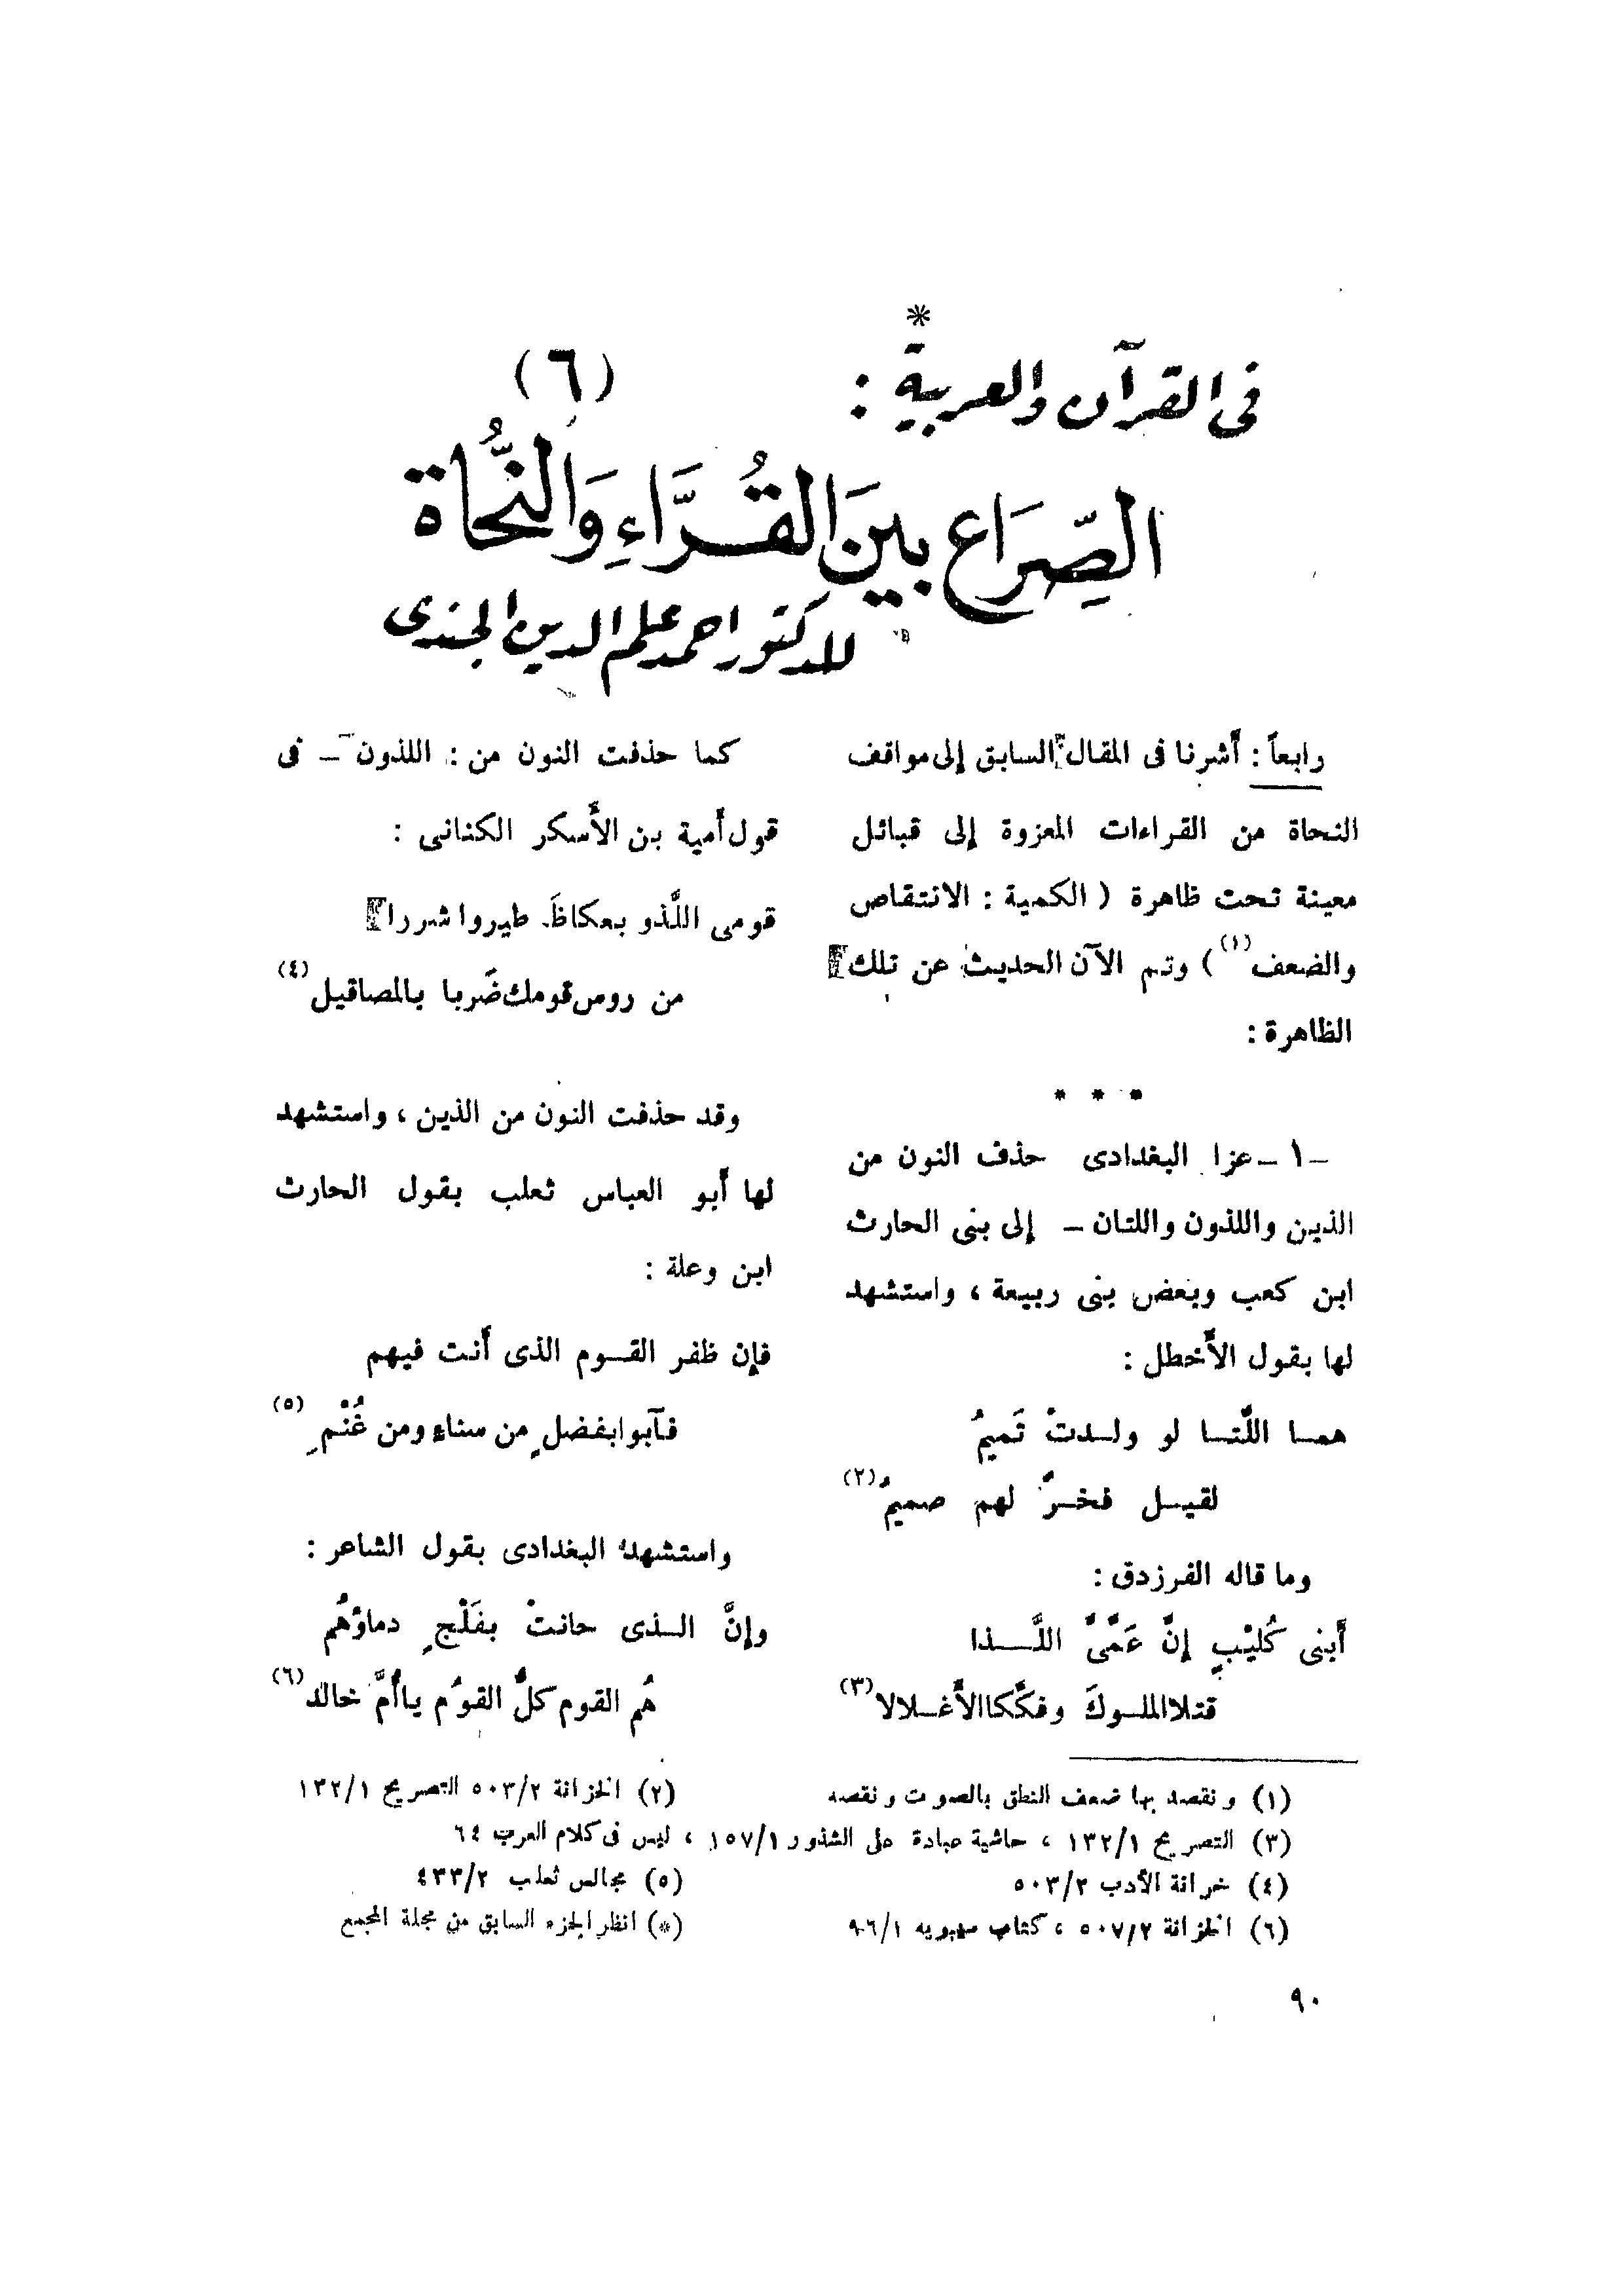 *
فى القرآن والعربية :
(٦)
الصِّرَاع بينَ القُرَّاءِ وَالنُّحاة
للدكتور احمد علم الدين الجندى
رابعاً : أَشرنا فى المقال السابق إلى مواقف
النحاة من القراءات المعزوة إلى قبائل
معينة تحت ظاهرة ( الكمية : الانتقاص
والضعف(١) ) وتم الآن الحديث عن تلك
الظاهرة :
* * *
–١– عزا البغدادى حذف النون من
الذين واللذون واللتان – إلى بنى الحارث
ابن كعب وبعض بنى ربيعة ، واستشهد
لها بقول الأَخطل :
همـا اللَّتـا لو ولـدتْ تَميمُ
لقيـل فخـرٌ لهم صميمُ(٢)
وما قاله الفرزدق :
أَبنى كُليْبٍ إنَّ عَمَّىَّ اللَّـذا
قتلا الملـوكَ وفكَّكا الأَغـلالا(٣)
كما حذفت النون من : اللذون – فى
قول أُمية بن الأَسكر الكنانى :
قومى اللَّذو بعكاظَ طيروا شررا
من روس قومك ضَربا بالمصاقيل(٤)
وقد حذفت النون من الذين ، واستشهد
لها أَبو العباس ثعلب بقول الحارث
ابن وعلة :
فإن ظفر القـوم الذى أَنت فيهم
فآبوا بفضلٍ من سناءٍ ومن غُنْمِ(٥)
واستشهد البغدادى بقول الشاعر :
وإنَّ الـذى حانتْ بفَلْجٍ دماؤهُم
هُم القوم كلُّ القوْم يا أُمَّ خالد(٦)
(١) ونقصد بها ضعف النطق بالصوت ونقصه
(٢) الخزانة ٥٠٣/٢ التصريح ١٣٢/١
(٣) التصريح ١٣٢/١ ، حاشية عبادة على الشذور ١٥٧/١ ، ليس فى كلام العرب ٦٤
(٤) خزانة الأدب ٥٠٣/٢
(٥) مجالس ثعلب ٤٣٣/٢
(٦) الخزانة ٥٠٧/٢ ، كتاب سيبويه ٩٦/١
(*) انظر الجزء السابق من مجلة المجمع
٩٠